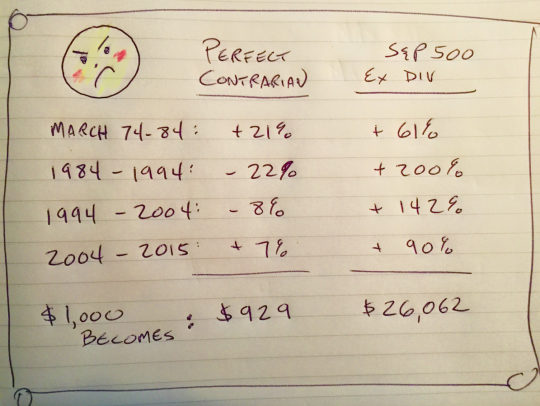 PERFECT CONTRARIAN S&P 500 EX DIV
MARCH 74-84: +21% +61%
1984-1994: -22% +200%
1994-2004: -8% +142%
2004-2015: +7% +90%
$1,000 BECOMES: $929 $26,062